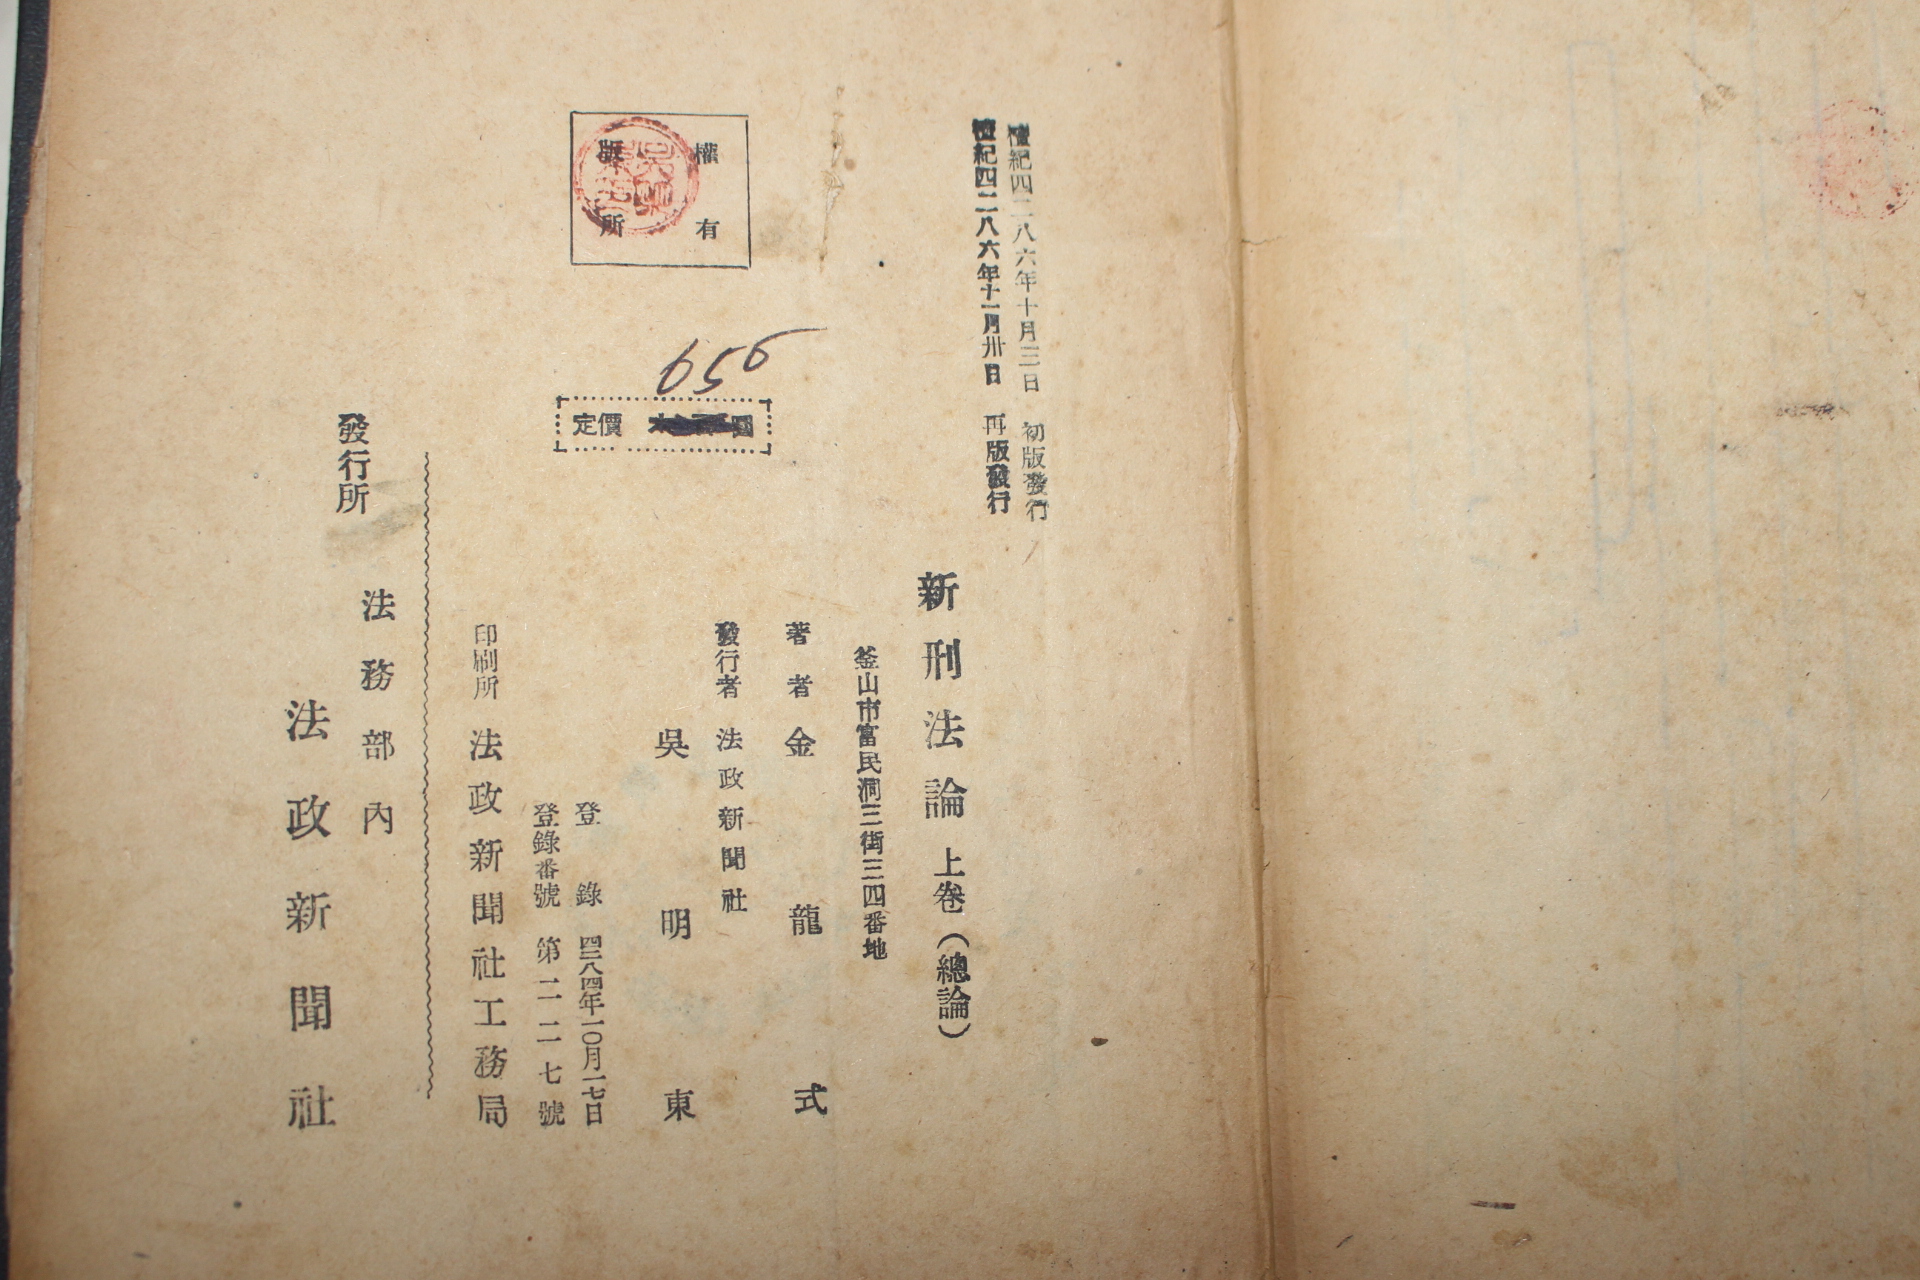 檀紀四二八六年十月三日 初版發行
檀紀四二八六年十一月卅日 再版發行
新刑法論 上卷(總論)
釜山市富民洞三街三四番地
著者 金龍式
發行者 法政新聞社
吳明東
權有
版所
656
定價 圓
登錄 四二八四年一〇月一七日
登錄番號 第二二七號
印刷所 法政新聞社工務局
法務部內
發行所
法政新聞社